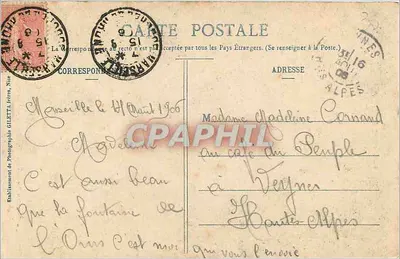 CARTE POSTALE
La Correspondance au recto n'est pas acceptée par tous les Pays Étrangers. (Se renseigner à la Poste)
CORRESPONDANCE
ADRESSE
MARSEILLE
7
15
8
06
16
ALPES
Marseille le Août 1906
Madame Madeleine
au café du Peuple
à
Veynes
Hautes Alpes
C'est aussi beau
que la fontaine de
l'Ours c'est moi
qui vous l'envoie
Etablissement de Photographie GILETTA frères, Nice
CPAPHIL